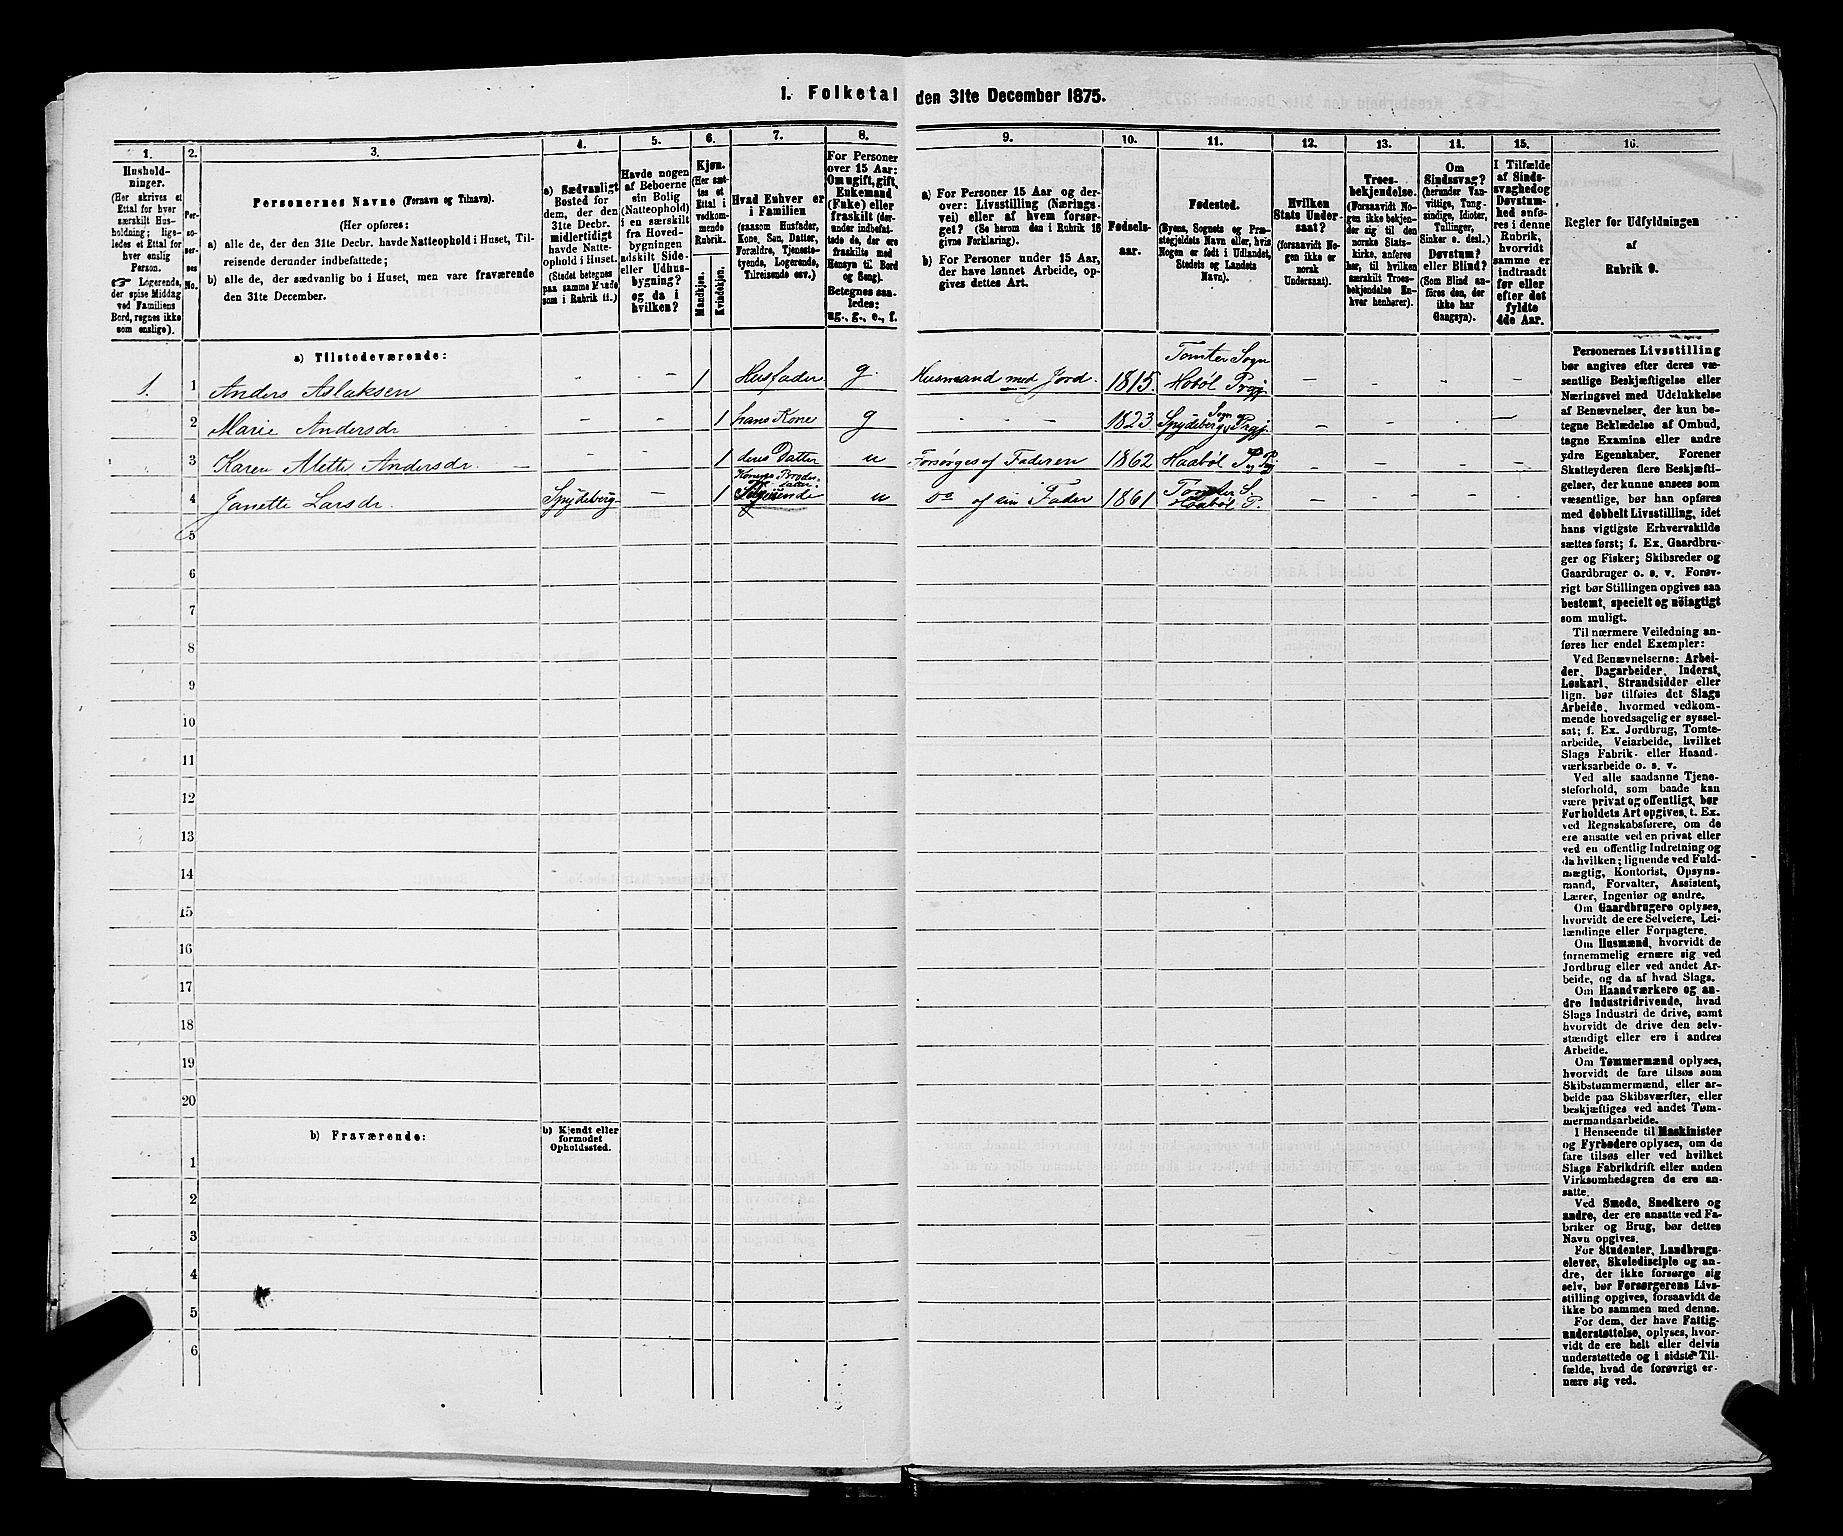 1. Folketal den 31te December 1875.
1.
2.
3.
4.
5.
6.
7.
8.
9.
10.
11.
12.
13.
14.
15.
16.
Hushold-
ninger.
(Her skrives et
Ettal for hver
særskilt Hus-
holdning; lige-
ledes et Ettal for
hver enslig
Person.
☞ Logerende,
der spise Middag
ved Familiens
Bord, regnes ikke
som enslige).
Per-
so-
ner-
nes
No.
Personernes Navne (Fornavn og Tilnavn).
(Her opføres:
a) alle de, der den 31te Decbr. havde Natteophold i Huset, Til-
reisende derunder indbefattede;
b) alle de, der sædvanlig bo i Huset, men vare fraværende
den 31te December.
a) Sædvanligt
Bosted for
dem, der den
31te Decbr.
midlertidigt
havde Natte-
ophold i Huset.
(Stedet betegnes
paa samme Maade
som i Rubrik 11.)
Havde nogen
af Beboerne
sin Bolig
(Natteophold)
i en særskilt
fra Hoved-
bygningen
adskilt Side-
eller Udhus-
bygning?
og da i
hvilken?
Kjøn.
(Her sæt-
tes et
Ettal i
vedkom-
mende
Rubrik.
Mandkjøn.
Kvindekjøn.
Hvad Enhver er
i Familien
(saasom Husfader,
Kone, Søn, Datter,
Forældre, Tjeneste-
tyende, Logerende,
Tilreisende osv.)
For Personer
over 15 Aar:
Om ugift, gift,
Enkemand
(Enke) eller
fraskilt (der-
under indbefat-
tede de, der ere
fraskilte med
Hensyn til Bord
og Seng).
Betegnes saa-
ledes:
ug., g., e., f.
a) For Personer 15 Aar og der-
over: Livsstilling (Nærings-
vei) eller af hvem forsør-
get? (Se herom den i Rubrik 16
givne Forklaring).
b) For Personer under 15 Aar,
der have lønnet Arbeide, op-
gives dettes Art.
Fødsels-
aar.
Fødested.
(Byens, Sognets og Præ-
stegjeldets Navn eller, hvis
Nogen er født i Udlandet,
Stedets og Landets
Navn).
Hvilken
Stats Under-
saat?
(forsaavidt No-
gen ikke er
norsk
Undersaat).
Troes-
bekjendelse.
(Forsaavidt No-
gen ikke bekjen-
der sig til den
norske Stats-
kirke, anføres
her, til hvilken
særskilt Troes-
bekjendelse En-
hver henhører).
Om
Sindssvag?
(herunder Van-
vittige, Tung-
sindige, Idioter,
Tullinger,
Sinker o. desl.)
Døvstum?
eller Blind?
(Som Blind an-
føres den, der
ikke har
Gangsyn).
I Tilfælde
af Sinds-
svaghed og
Døvstum-
hed anfø-
res i denne
Rubrik,
hvorvidt
samme er
indtraadt
før eller
efter det
fyldte
4de Aar.
Regler for Udfyldningen
af
Rubrik 9.
a) Tilstedeværende:
1. 1 Anders Aslaksen - - 1 Husfader g. Husmand med Jord. 1815. Tomter Sogn
Hobøl Prgj. - - - -
2 Marie Andersdr - - 1 hans Kone g - - - 1823. Spydeberg Sogn & Prgj. - - - -
3 Karen Alette Andersdr. - - - 1 deres Datter u Forsørges af Faderen 1862 Haabøl - - - -
4 Janette Larsdr. Spydeberg - 1 datter. u do af sin Fader 1861 Tomter S.
Haabøl P. - - - -
5
6
7
8
9
10
11
12
13
14
15
16
17
18
19
20
b) Fraværende:
b) Kjendt eller
formodet
Opholdssted.
1
2
3
4
5
6
Personernes Livsstilling
bør angives efter deres væ-
sentlige Beskjæftigelse eller
Næringsvei med Udelukkelse
af Benævnelser, der kun be-
tegne Beklædelse af Ombud,
tagne Examina eller andre
ydre Egenskaber. Forener
Skatteyderen flere Beskjæfti-
gelser, der kunne ansees som
væsentlige, bør han opføres
med dobbelt Livsstilling, idet
hans vigtigste Erhvervskilde
sættes først; f. Ex. Gaardbru-
ger og Fisker; Skibsreder og
Gaardbruger o. s. v. Forøv-
rigt bør Stillingen opgives saa
bestemt, specielt og nöiagtigt
som muligt.
Til nærmere Veiledning an-
føres her endel Exempler:
Ved Benævnelserne: Arbei-
der, Dagarbeider, Inderst,
Løskarl, Strandsidder eller
lign. bør tilføies det Slags
Arbeide, hvormed vedkom-
mende hovedsagelig er syssel-
sat; f. Ex. Jordbrug, Tomte-
arbeide, Veiarbeide, hvilket
Slags Fabrik- eller Haand-
værksarbeide o. s. v.
Ved alle saadanne Tjene-
steforhold, som baade kan
være privat og offentligt, bør
Forholdets Art opgives, t. Ex.
ved Regnskabsførere, om de
ere ansatte ved en privat eller
ved en offentlig Indretning og
da hvilken; lignende ved Fuld-
mægtig, Kontorist, Opsyns-
mand, Forvalter, Assistent,
Lærer, Ingeniør og andre.
Om Gaardbrugere oplyses,
hvorvidt de ere Selveiere, Lei-
lændinge eller Forpagtere.
Om Husmænd, hvorvidt de
fornemmelig ernære sig ved
Jordbrug eller ved andet Ar-
beide, og da af hvad Slags.
Om Haandværkere og an-
dre Industridrivende, hvad
Slags Industri de drive, samt
hvorvidt de drive den selv-
stændigt eller ere i andres
Arbeide.
Om Tømmermænd oplyses,
hvorvidt de fare tilsøs som
Skibstømmermænd, eller ar-
beide paa Skibsværfter, eller
beskjæftiges ved andet Tøm-
mermandsarbeide.
I Henseende til Maskinister
og Fyrbødere oplyses, om de
fare tilsøs eller ved hvilket
Slags Fabrikdrift eller anden
Virksomhedsgren de ere an-
satte.
Ved Smede, Snedkere og
andre, der ere ansatte ved Fa-
briker og Brug, bør dettes
Navn opgives.
For Studenter, Landbrugs-
elever, Skoledisciple og an-
dre, der ikke forsørge sig
selv, bør Forsørgerens Livs-
stilling opgives, forsaavidt de
ikke bo sammen med denne.
For dem, der have Fattig-
understøttelse, oplyses, hvor-
vidt de ere helt eller delvis
understøttede og i sidste Til-
fælde, hvad de forøvrigt er-
nære sig ved.